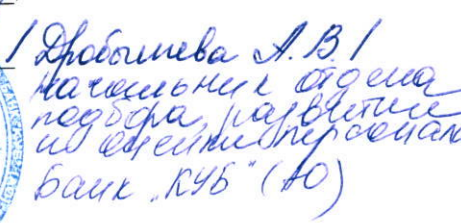 / Дробышева А.В. /
начальник отдела
подбора, развития
и оценки персонала
Банк "КУБ" (АО)